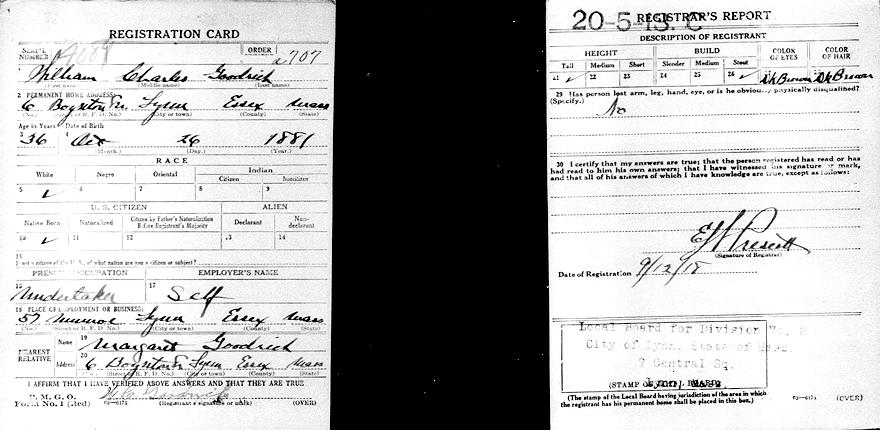 REGISTRATION CARD
SERIAL NUMBER 4089 ORDER 2707
1 William Charles Goodrich
(First name) (Middle name) (Last name)
2 PERMANENT HOME ADDRESS:
6 Boynton Lynn Essex Mass
(No.) (Street or R. F. D. No.) (City or town) (County) (State)
Age in Years Date of Birth
3 36 4 Oct 26 1881
(Month.) (Day.) (Year.)
RACE
White Negro Oriental Indian
Citizen Noncitizen
5 ✓ 6 7 8 9
U. S. CITIZEN ALIEN
Native Born Naturalized Citizen by Father's Naturalization Before Registrant's Majority Declarant Non-declarant
10 ✓ 11 12 13 14
15
If not a citizen of the U. S., of what nation are you a citizen or subject?
PRESENT OCCUPATION EMPLOYER'S NAME
16 Undertaker 17 Self
18 PLACE OF EMPLOYMENT OR BUSINESS:
57 Munroe Lynn Essex Mass
(No.) (Street or R. F. D. No.) (City or town) (County) (State)
NEAREST RELATIVE Name 19 Margaret Goodrich
Address 20 6 Boynton Lynn Essex Mass
(No.) (Street or R. F. D. No.) (City or town) (County) (State)
I AFFIRM THAT I HAVE VERIFIED ABOVE ANSWERS AND THAT THEY ARE TRUE
P. M. G. O.
Form No. 1 (Red) W. C. Goodrich
(Registrant's signature or mark) (OVER)
20-5-13. C REGISTRAR'S REPORT
DESCRIPTION OF REGISTRANT
HEIGHT BUILD COLOR OF EYES COLOR OF HAIR
Tall Medium Short Slender Medium Stout
21 ✓ 22 23 24 25 26 ✓ 27 Dk Brown 28 Dk Brown
29 Has person lost arm, leg, hand, eye, or is he obviously physically disqualified?
(Specify.) No
30 I certify that my answers are true; that the person registered has read or has
had read to him his own answers; that I have witnessed his signature or mark,
and that all of his answers of which I have knowledge are true, except as follows:
E W Prescott
(Signature of Registrar)
Date of Registration 9/12/18
Local Board for Division No. 2
City of Lynn, State of Mass
7 Central Sq.
Lynn, Mass.
(STAMP OF LOCAL BOARD)
(The stamp of the Local Board having jurisdiction of the area in which
the registrant has his permanent home shall be placed in this box.) 03—6171 (OVER)